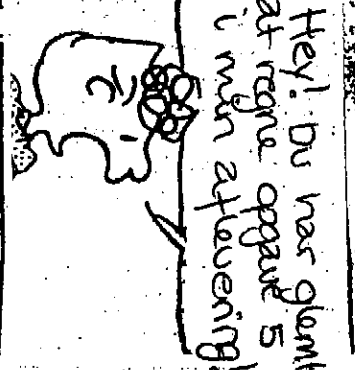 Hey! Du har glemt
at regne opgave 5
i min aflevering!